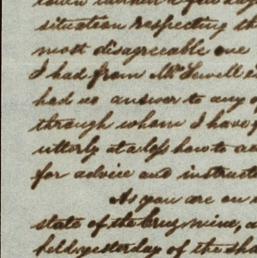 situation respecting th
most disagreeable one
I had from Mr Sewell
had no answer to any o
through whom I have
utterly at a loss how to ac
for advice and instruct
As you are on
state of the Cruz mine, a
held yesterday of the sha